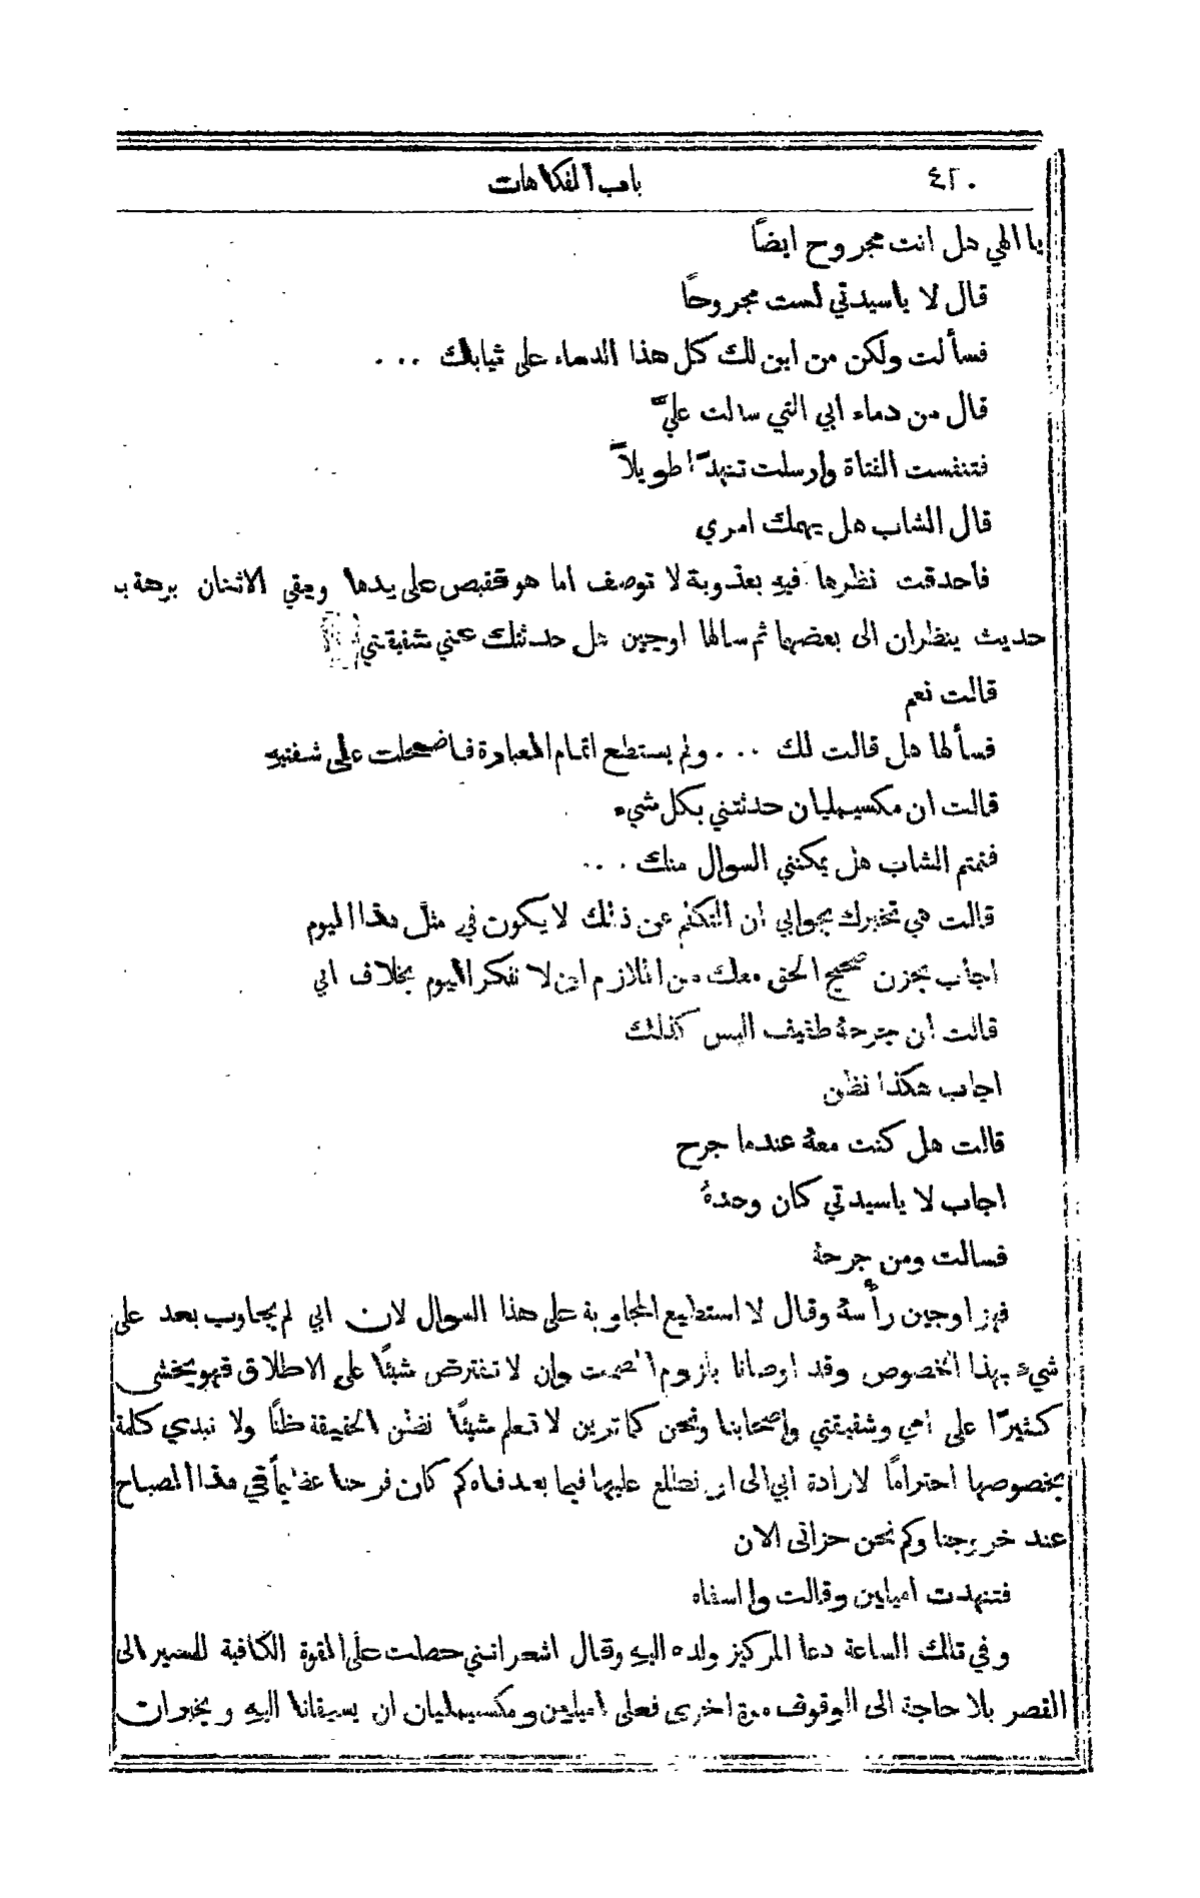 ٤٢٠ باب الفكاهات
يا الهي هل انت مجروح ايضاً
قال لا ياسيدتي لست مجروحاً
فسألت ولكن من اين لك كل هذا الدماء على ثيابك ...
قال من دماء ابي التي سالت عليَّ
فتنفست الفتاة وارسلت تنهدًا طويلاً
قال الشاب هل يهمك امري
فاحدقت نظرها فيه بعذوبة لا توصف اما هو فقبص على يدها وبقي الاثنان برهة بـ
حديث ينظران الى بعضهما ثم سالها اوجين هل حدثتك عني شقيقتي
قالت نعم
فسألها هل قالت لك ... ولم يستطع اتمام العبارة فاضمحلت على شفتيه
قالت ان مكسيمليان حدثتني بكل شيء
فتمتم الشاب هل يمكنني السوال منك ...
قالت هي تخبرك بجوابي ان التكلم عن ذلك لا يكون في مثل هذا اليوم
اجاب بحزن صحيح الحق معك من اللازم ان لا نفكر اليوم بخلاف ابي
قالت ان جرحهُ طفيف اليس كذلك
اجاب هكذا نظن
قالت هل كنت معهُ عندما جرح
اجاب لا ياسيدتي كان وحدهُ
فسالت ومن جرحهُ
فهز اوجين رأسهُ وقال لا استطيع المجاوبة على هذا السوال لان ابي لم يجاوب بعد على
شيءٍ بهذا الخصوص وقد اوصانا بلزوم الصمت وان لا تفترض شيئًا على الاطلاق فهو يخشى
كثيرًا على امي وشقيقتي واصحابنا ونحن كما ترين لا نعلم شيئًا نظن الحقيقة ظنًا ولا نبدي كلمة
بخصوصها احترامًا لارادة ابي الى ان نطلع عليها فيما بعد فاه كم كان فرحنا عظيماً في هذا الصباح
عند خروجنا وكم نحن حزانى الان
فتنهدت اميلين وقالت وا اسفاه
وفي تلك الساعة دعا المركيز ولده اليه وقال اشعر انني حصلت على القوة الكافية للمسير الى
القصر بلا حاجة الى الوقوف مرة اخرى فعلى اميلين ومكسيمليان ان يسبقانا اليه ويخبران